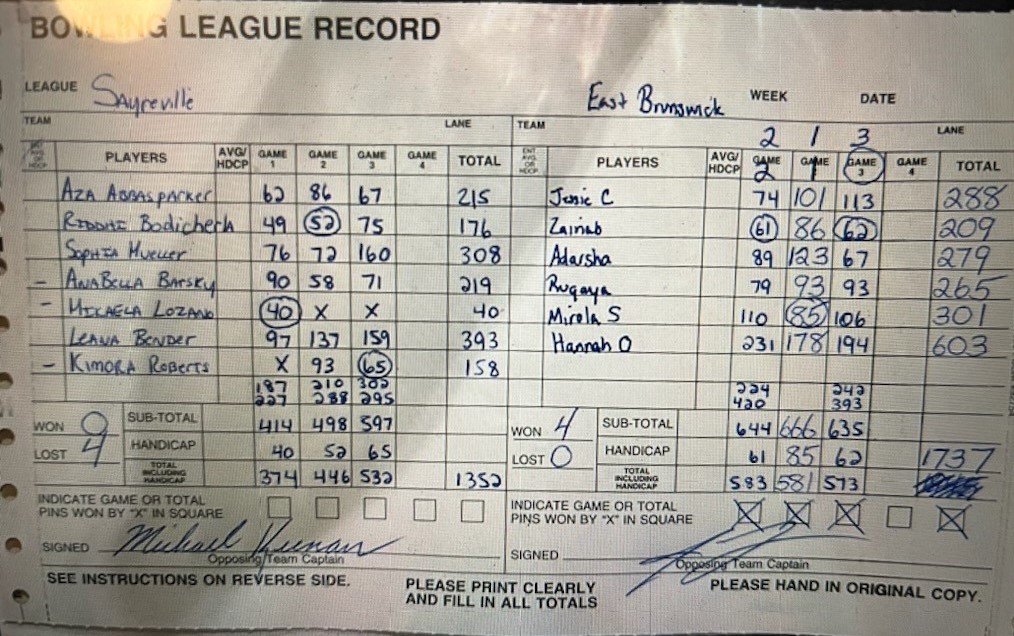 BOWLING LEAGUE RECORD
LEAGUE Sayreville East Brunswick WEEK DATE
TEAM LANE TEAM 2 1 3 LANE
PLAYERS AVG/HDCP GAME 1 GAME 2 GAME 3 GAME 4 TOTAL PLAYERS AVG/HDCP GAME 2 GAME 1 GAME 3 GAME 4 TOTAL
AZA ABBASPARKER 62 86 67 215 Jessie C 74 101 113 288
RIDDHI Bodichech 49 52 75 176 Zainab 61 86 62 209
SOPHIA MUELLER 76 72 160 308 Adarsha 89 123 67 279
- ANABELLA BARSKY 90 58 71 219 Rugaya 79 93 93 265
- MICAELA LOZANO 40 X X 40 Mirola S 110 85 106 301
LEANA BENDER 97 137 159 393 Hannah O 231 178 194 603
- KIMORA ROBERTS X 93 65 158
187 210 302 224 242
227 288 295 420 393
WON 0 SUB-TOTAL 414 498 597 WON 4 SUB-TOTAL 644 666 635
LOST 4 HANDICAP 40 52 65 LOST 0 HANDICAP 61 85 62 1737
TOTAL INCLUDING HANDICAP 374 446 532 1352 TOTAL INCLUDING HANDICAP 583 581 573
INDICATE GAME OR TOTAL INDICATE GAME OR TOTAL
PINS WON BY "X" IN SQUARE PINS WON BY "X" IN SQUARE X X X X
SIGNED Michael SIGNED
Opposing Team Captain Opposing Team Captain
SEE INSTRUCTIONS ON REVERSE SIDE. PLEASE PRINT CLEARLY PLEASE HAND IN ORIGINAL COPY.
AND FILL IN ALL TOTALS